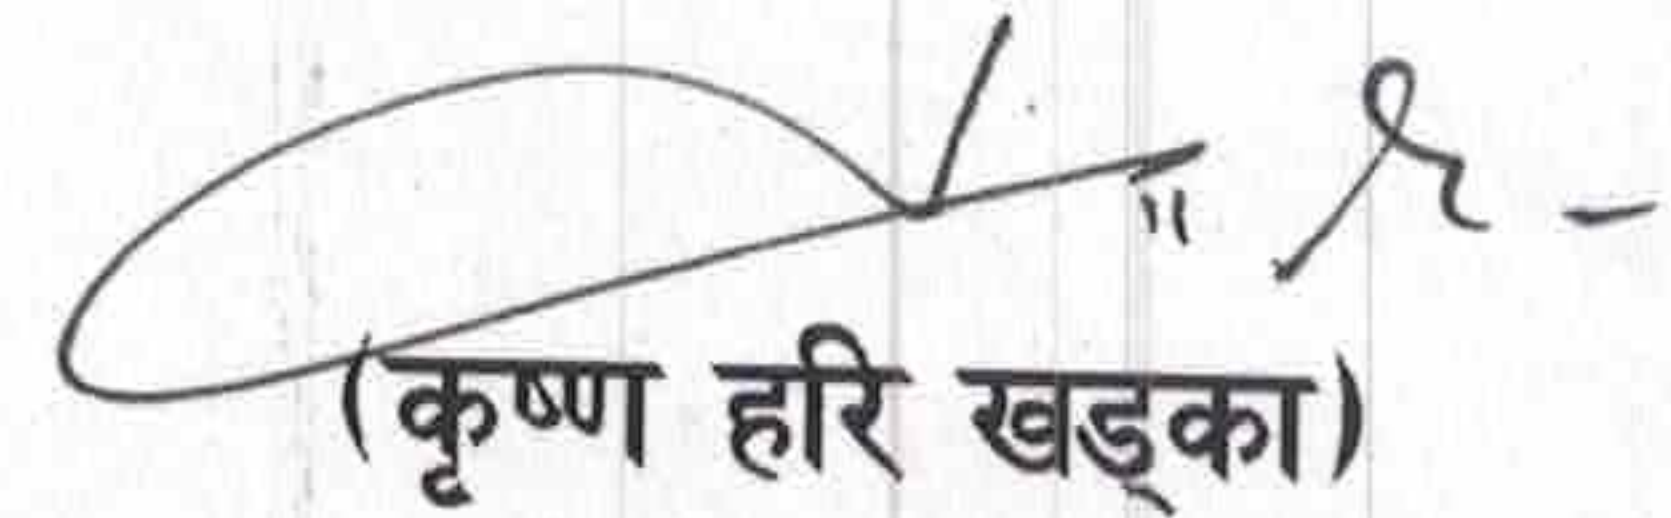 (कृष्ण हरि खड्का)